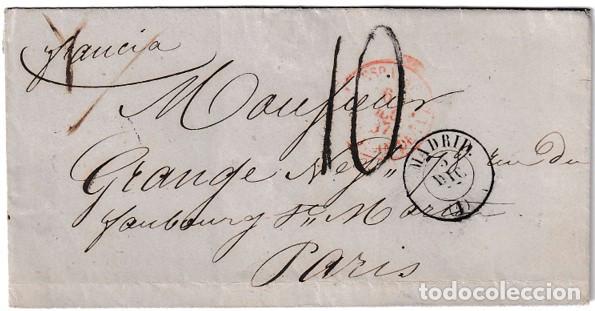 francia
10
Monsieur
MADRID
DIC
(1)
Grange Nev rue du
faubourg St. Martin
Paris
todocoleccion